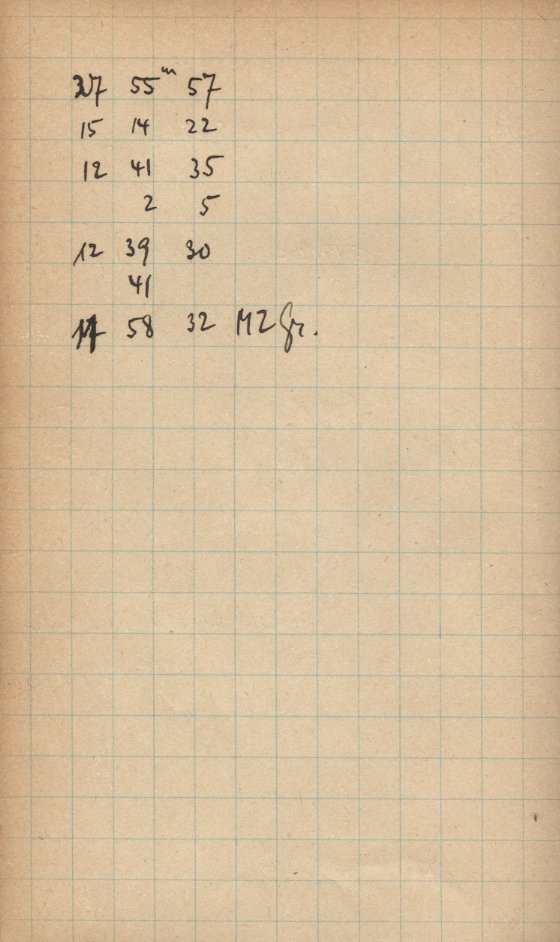 27 55ᵐ 57
15 14 22
12 41 35
2 5
12 39 30
41
11 58 32 MZ Gr.